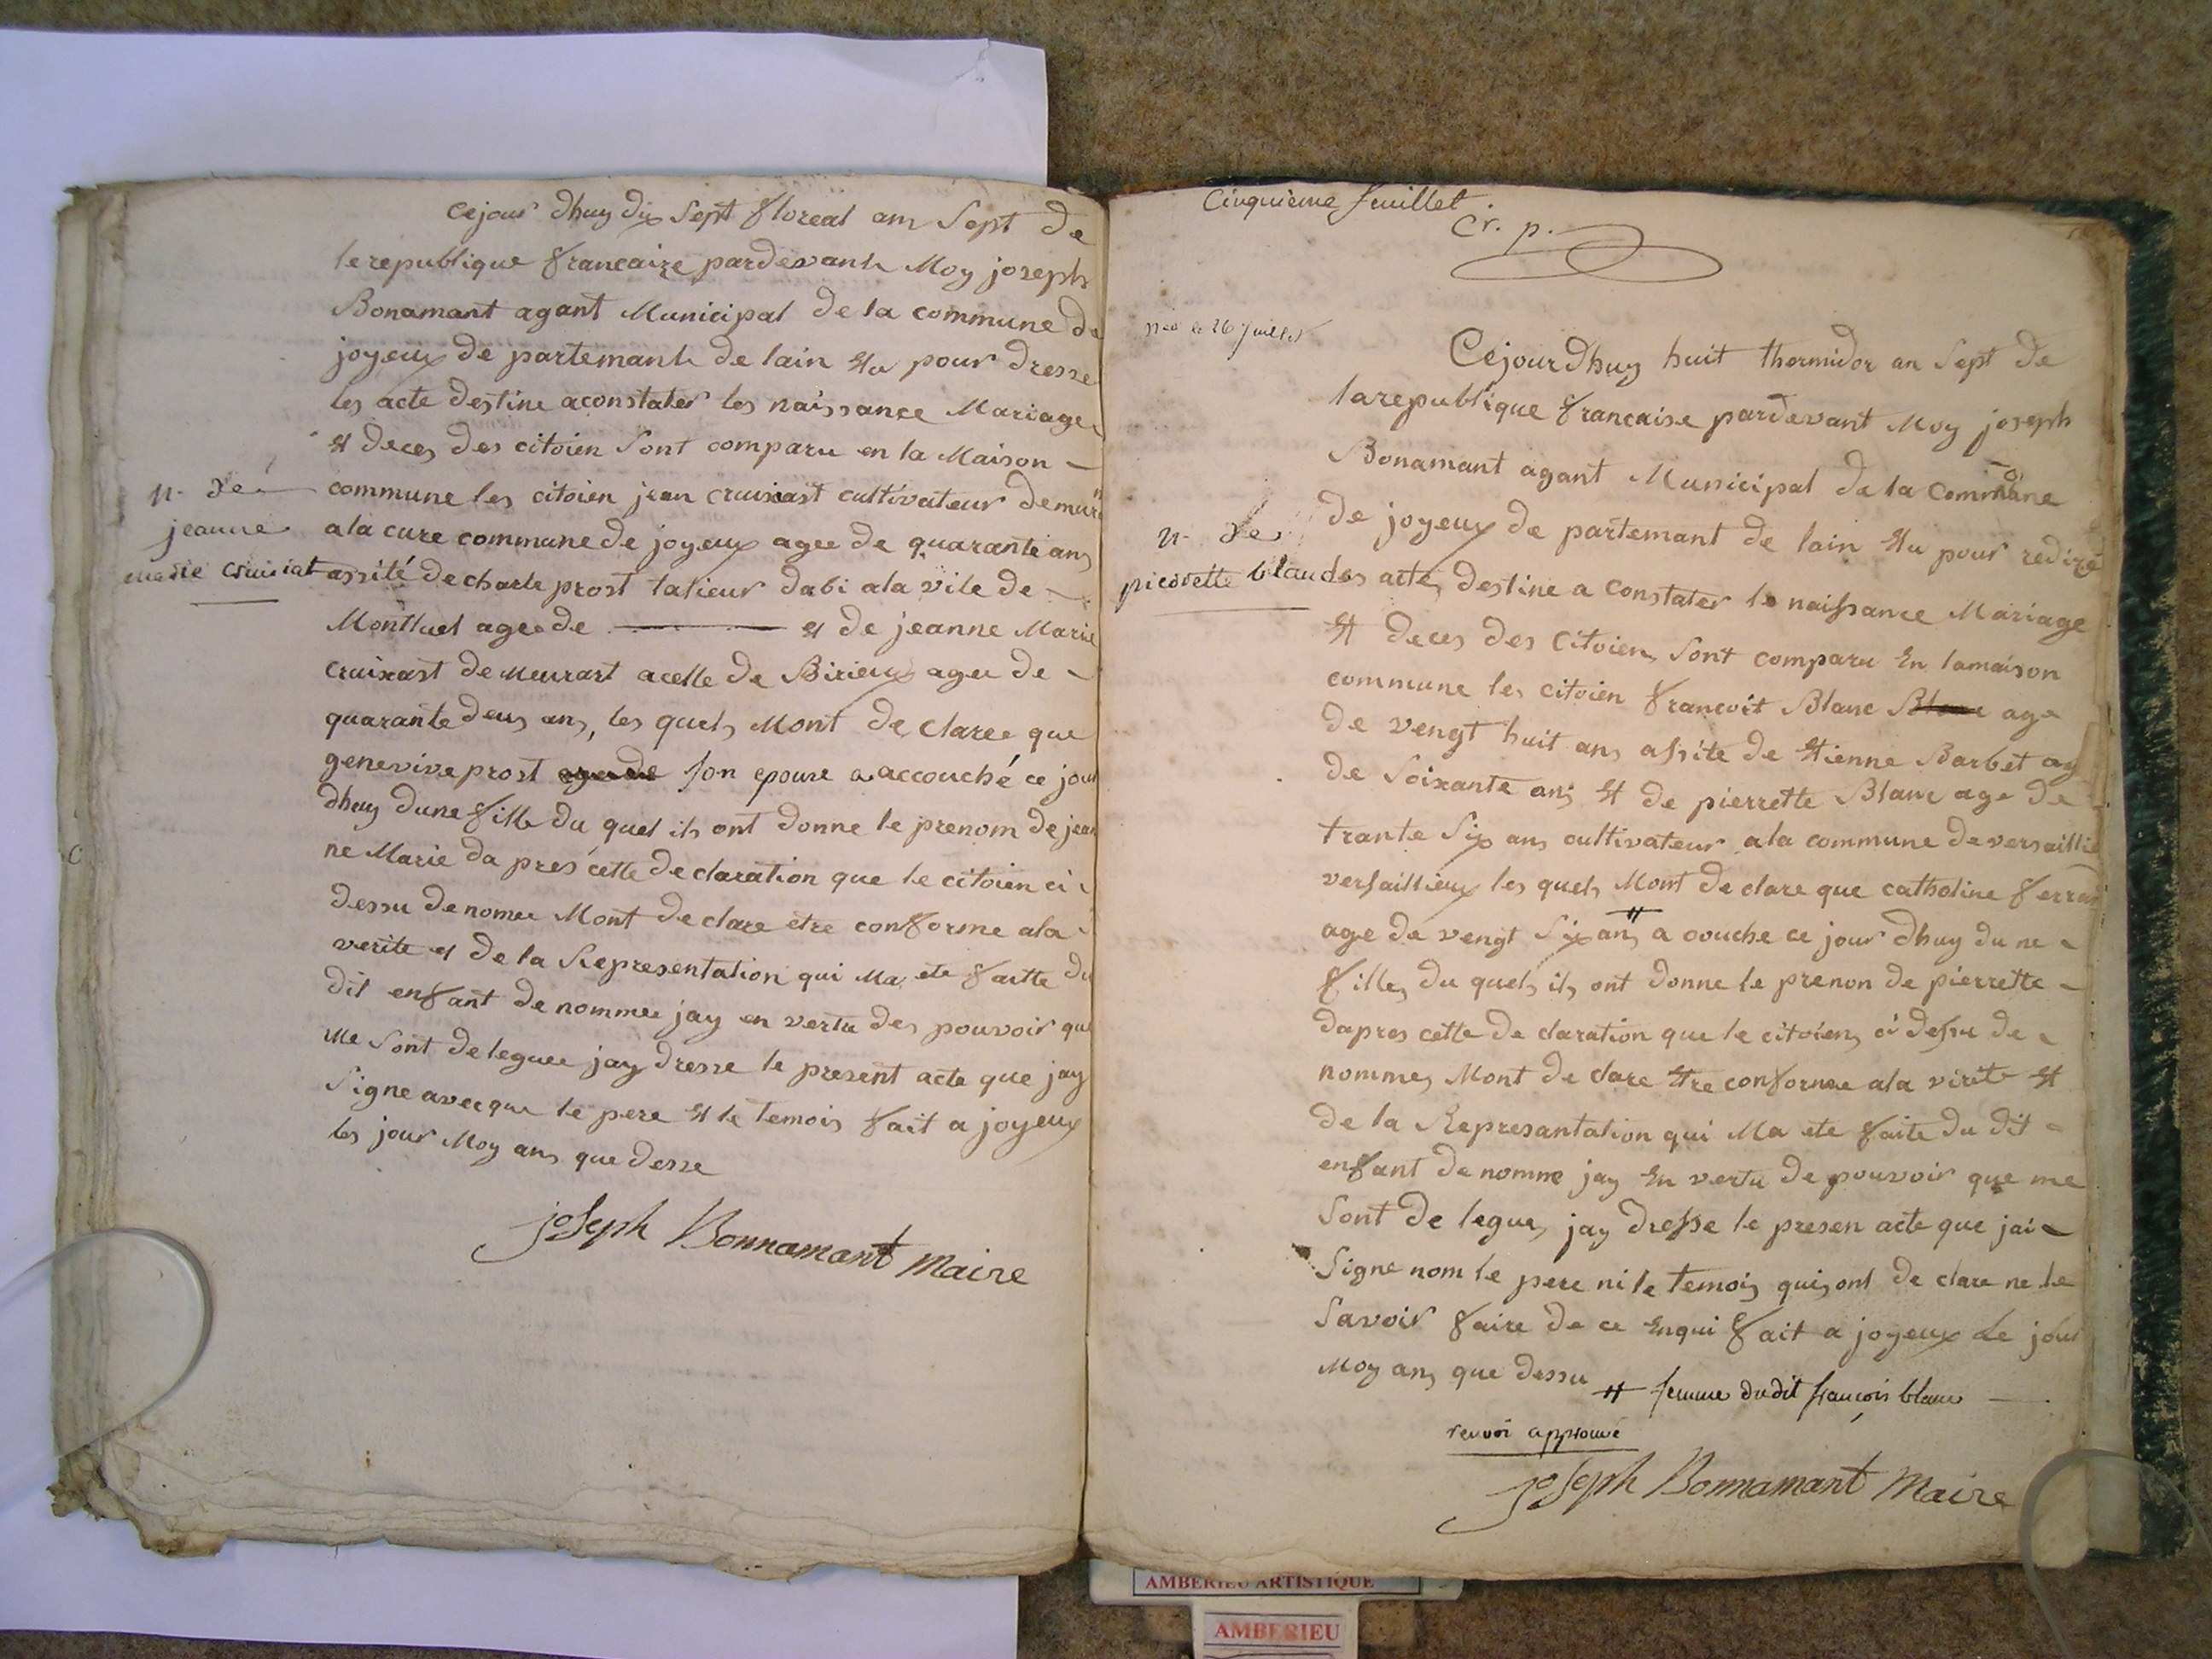 cejour dhuy dix Sept floreal am Sept de
le republique francaize pardevanh Moy joseph
Bonamant agant Municipal de la commune de
joyeux de partemanh de lain Elu pour dresse
les acte destine aconstater les naissance Mariage
et deces des citoien Sont comparu en la Maison
commune les citoien jean cruixast cultivateur
ala cure commune de joyeux agee de quarante ans
assité de charle prost talieur dabi ala vile de
Montluel agee de et de jeanne Marie
cruixast de Meurart acelle de Birieux agee de
quarante deus ans, les quels Mont de claree que
genevive prost son epouse a accouché ce jour
dhuy dune fille du quel ils ont donne le prenom de jean
ne Marie da pres cette declaration que le citoien ci
dessu denomee Mont declare etre conforme ala
verite et de la Representation qui Ma ete faitte du
dit enfant de nommee jay en vertu des pouvoir qui
Me Sont deleguee jay dresse le present acte que jay
Signe avecque le pere et le temois fait a joyeux
les jour Moy ans que desse
joseph Bonnamant Maire
n. de
jeanne
marie cruisiat
Cinquième feuillet
Cr. p.
née le 26 juillet
n. de
pierrette blanc
Cejourdhuy huit thermidor an Sept de
larepublique francaise pardevant Moy joseph
Bonamant agant Municipal de la Commune
de joyeux de partemant de lain Elu pour redire
des acte, destine a constater le naissance Mariage
et deces des Citoien Sont comparu En lamaison
commune les citoien francoit Blanc age
de vengt huit ans assite de Etienne Barbet ag
de Soixante ans et de pierrette Blanc age de
trante Six ans cultivateur ala commune de versaillie
versaillieux les quels Mont de clare que catholine ferra
age de vengt Six ans # a couche ce jour dhuy du ne
fille, du quel, ils ont donne le prenon de pierrette
dapres cette de claration que le citoien, ci dessu de
nomme, Mont de clare Etre conforme ala virite et
de la Represantation qui Ma ete faite du dit
enfant de nomme jay En vertu de pouvoir que me
Sont de legue, jay dresse le presen acte que jai
Signe nom le pere ni le temois qui, ont de clare ne le
Savoir faire de ce Enqui fait a joyeux Le jour
Moy ans que dessu # femme dudit françois blanc
renvoi approuvé
joseph Bonnamant Maire
AMBERIEU ARTISTIQUE
AMBERIEU